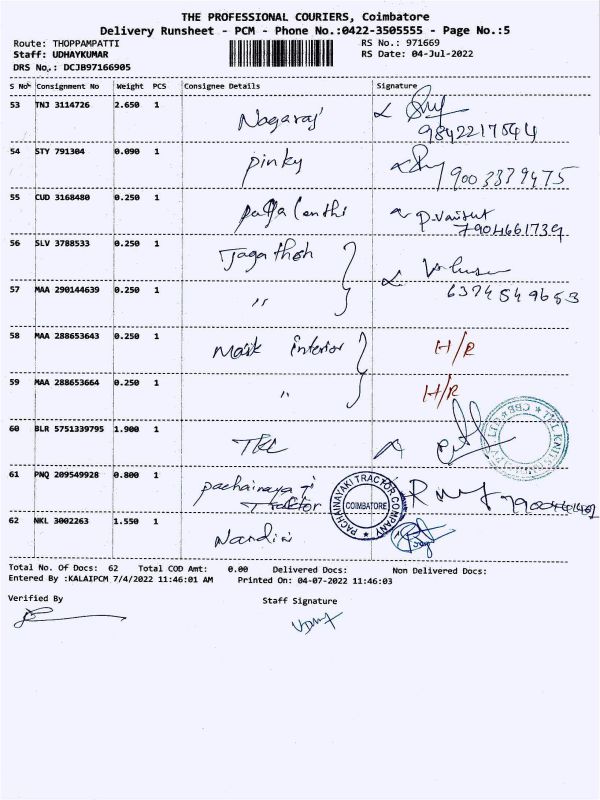 THE PROFESSIONAL COURIERS, Coimbatore
Delivery Runsheet - PCM - Phone No.:0422-3505555 - Page No.:5
Route: THOPPAMPATTI
RS No.: 971669
Staff: UDHAYKUMAR
RS Date: 04-Jul-2022
DRS No.: DCJB97166905
S No Consignment No Weight PCS Consignee Details Signature
53 TNJ 3114726 2.650 1 Nagaraj
9842217544
54 STY 791304 0.090 1 pinky 9003379475
55 CUD 3168480 0.250 1
7904661739
56 SLV 3788533 0.250 1 Jagathesh
57 MAA 290144639 0.250 1 " 6374549653
58 MAA 288653643 0.250 1 Mark interior H/R
59 MAA 288653664 0.250 1 " H/R
60 BLR 5751339795 1.900 1 TKL
61 PNQ 209549928 0.800 1 pachainaya ki
Tractor
PACHAINAYAKI TRACTOR COMPANY
COIMBATORE
62 NKL 3002263 1.550 1 Nandini
Total No. Of Docs: 62 Total COD Amt: 0.00 Delivered Docs: Non Delivered Docs:
Entered By :KALAIPCM 7/4/2022 11:46:01 AM Printed On: 04-07-2022 11:46:03
Verified By
Staff Signature